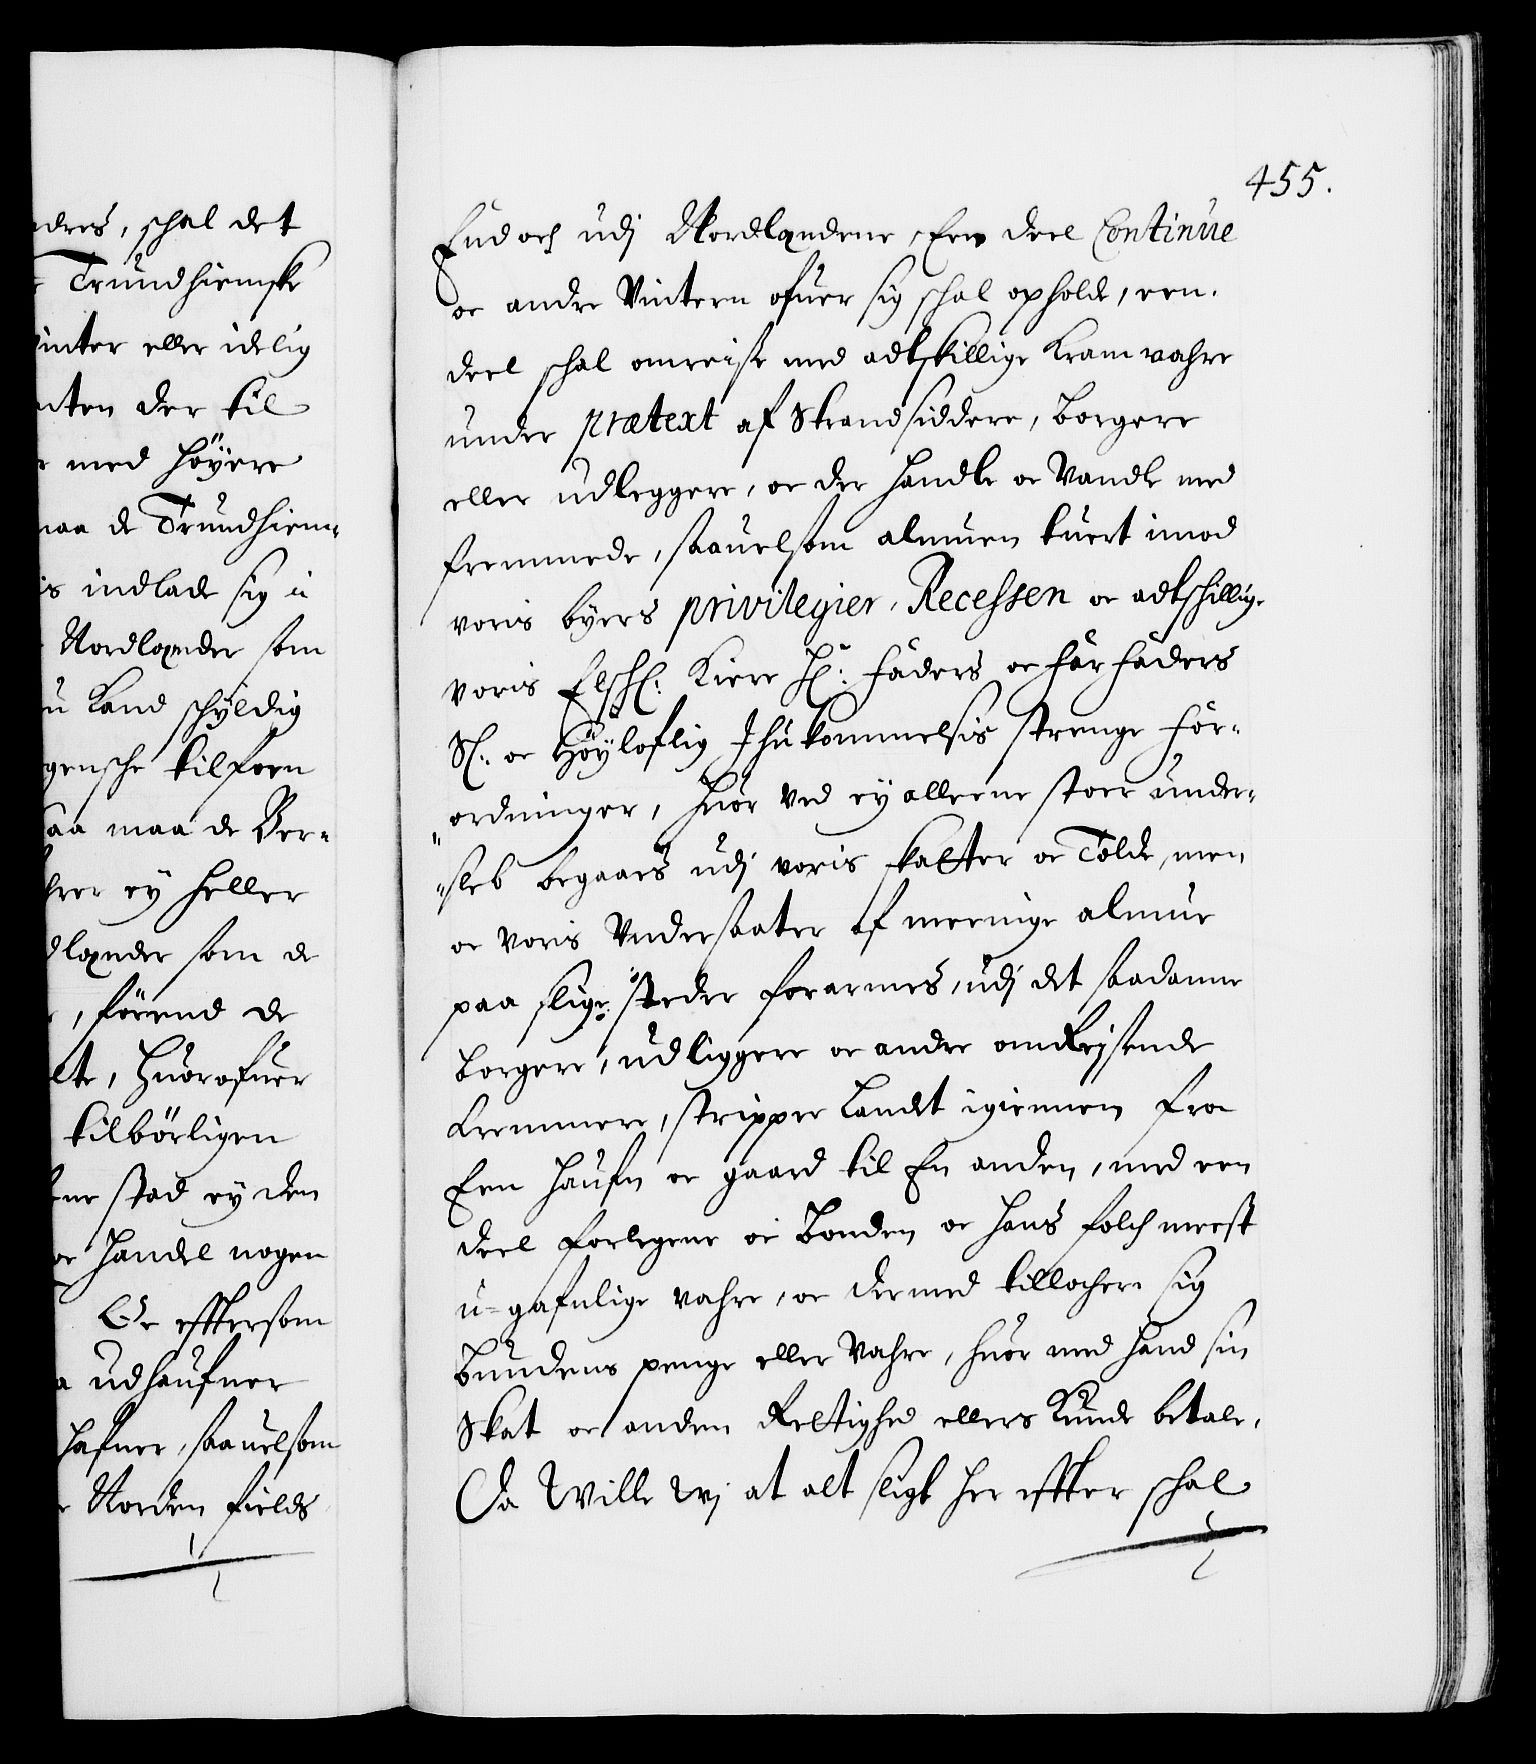 ndres, schal det
Trundhiemske
inter eller idelig
nten der til
med höyere
maa de Trundhiem-
is indlade sig i
Nordlander som
u Land schyldig
gensche tilforn
saa maa de Ber-
ey heller
dlander som de
, förend de
lte, huorofuer
tilbörligen
ne stad ey den
oc handel nogen
Oc efftersom
udhaufner
hafner, saauelsom
Norden fields
455.
End och udj Nordlandene, Een deel Continue
oc andre Vinteren ofuer sig schal opholde, een
deel schal omreise med adtskillige kram vahre
under prætext af Strandsiddere, borgere
eller udleggere, oc der handle oc vandle med
fremmede, saauelsom almuen tuert imod
voris byers privilegier, Recessen oc adtschillige
voris Elsch: Kiere H: faders oc farfaders
S: oc Höyloflig Ihukommelsis strenge for-
ordninger, huor ved ey alleene stoer under-
sleb begaaes udj voris skatter oc Tolde, men
oc voris Undersaater af meenige almue
paa slige steder forarmes, udj det saadanne
borgere, udliggere oc andre omrejsende
kremmere, stripper landet igiennem fra
Een haufn oc gaard til En anden, med een
deel forlegene oc bonden oc hans folch meest
u-gafnlige vahre, oc dermed tillochere sig
bundens penge eller vahre, huor med hand sin
Skat oc anden Rettighed ellers kunde betale,
Da Wille Wj at alt sligt her effter schal